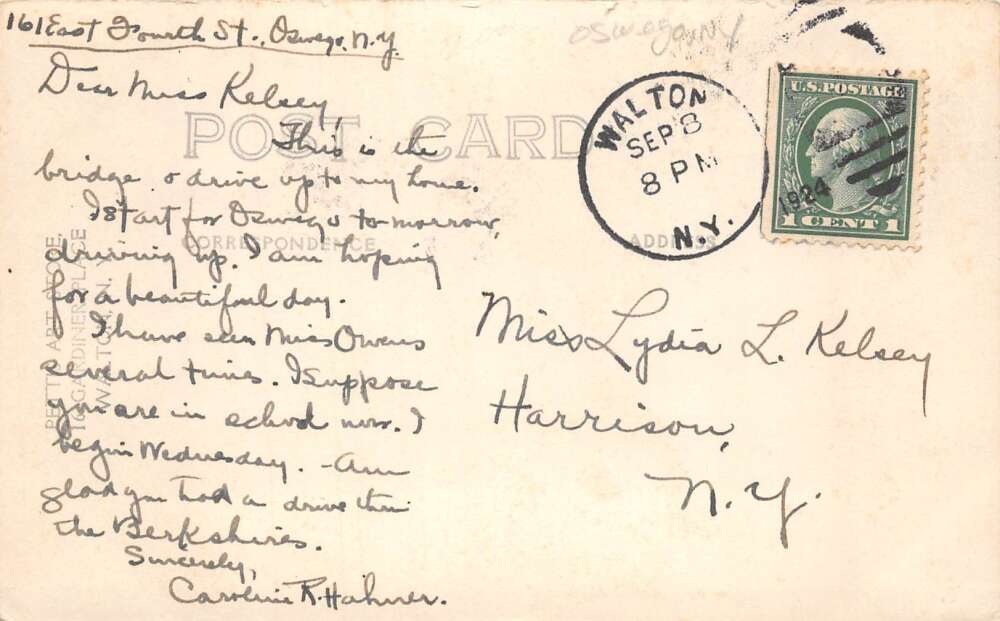 161 East Fourth St., Oswego, N.Y.
Oswego NY
Dear Miss Kelsey,
POST CARD
This is the
bridge o drive up to my home.
I start for Oswego to-morrow,
CORRESPONDENCE
driving up. I am hoping
for a beautiful day.
I have seen Miss Owens
several times. I suppose
you are in school now. I
begin Wednesday. Am
glad you had a drive thru
the Berkshires.
Sincerely,
Caroline R. Hahner.
ART
GARDINER PLACE
WALTON, N.Y.
WALTON
SEP 8
8 PM
N.Y.
1924
U.S. POSTAGE
1 CENT 1
ADDRESS
Miss Lydia L. Kelsey
Harrison,
N.Y.